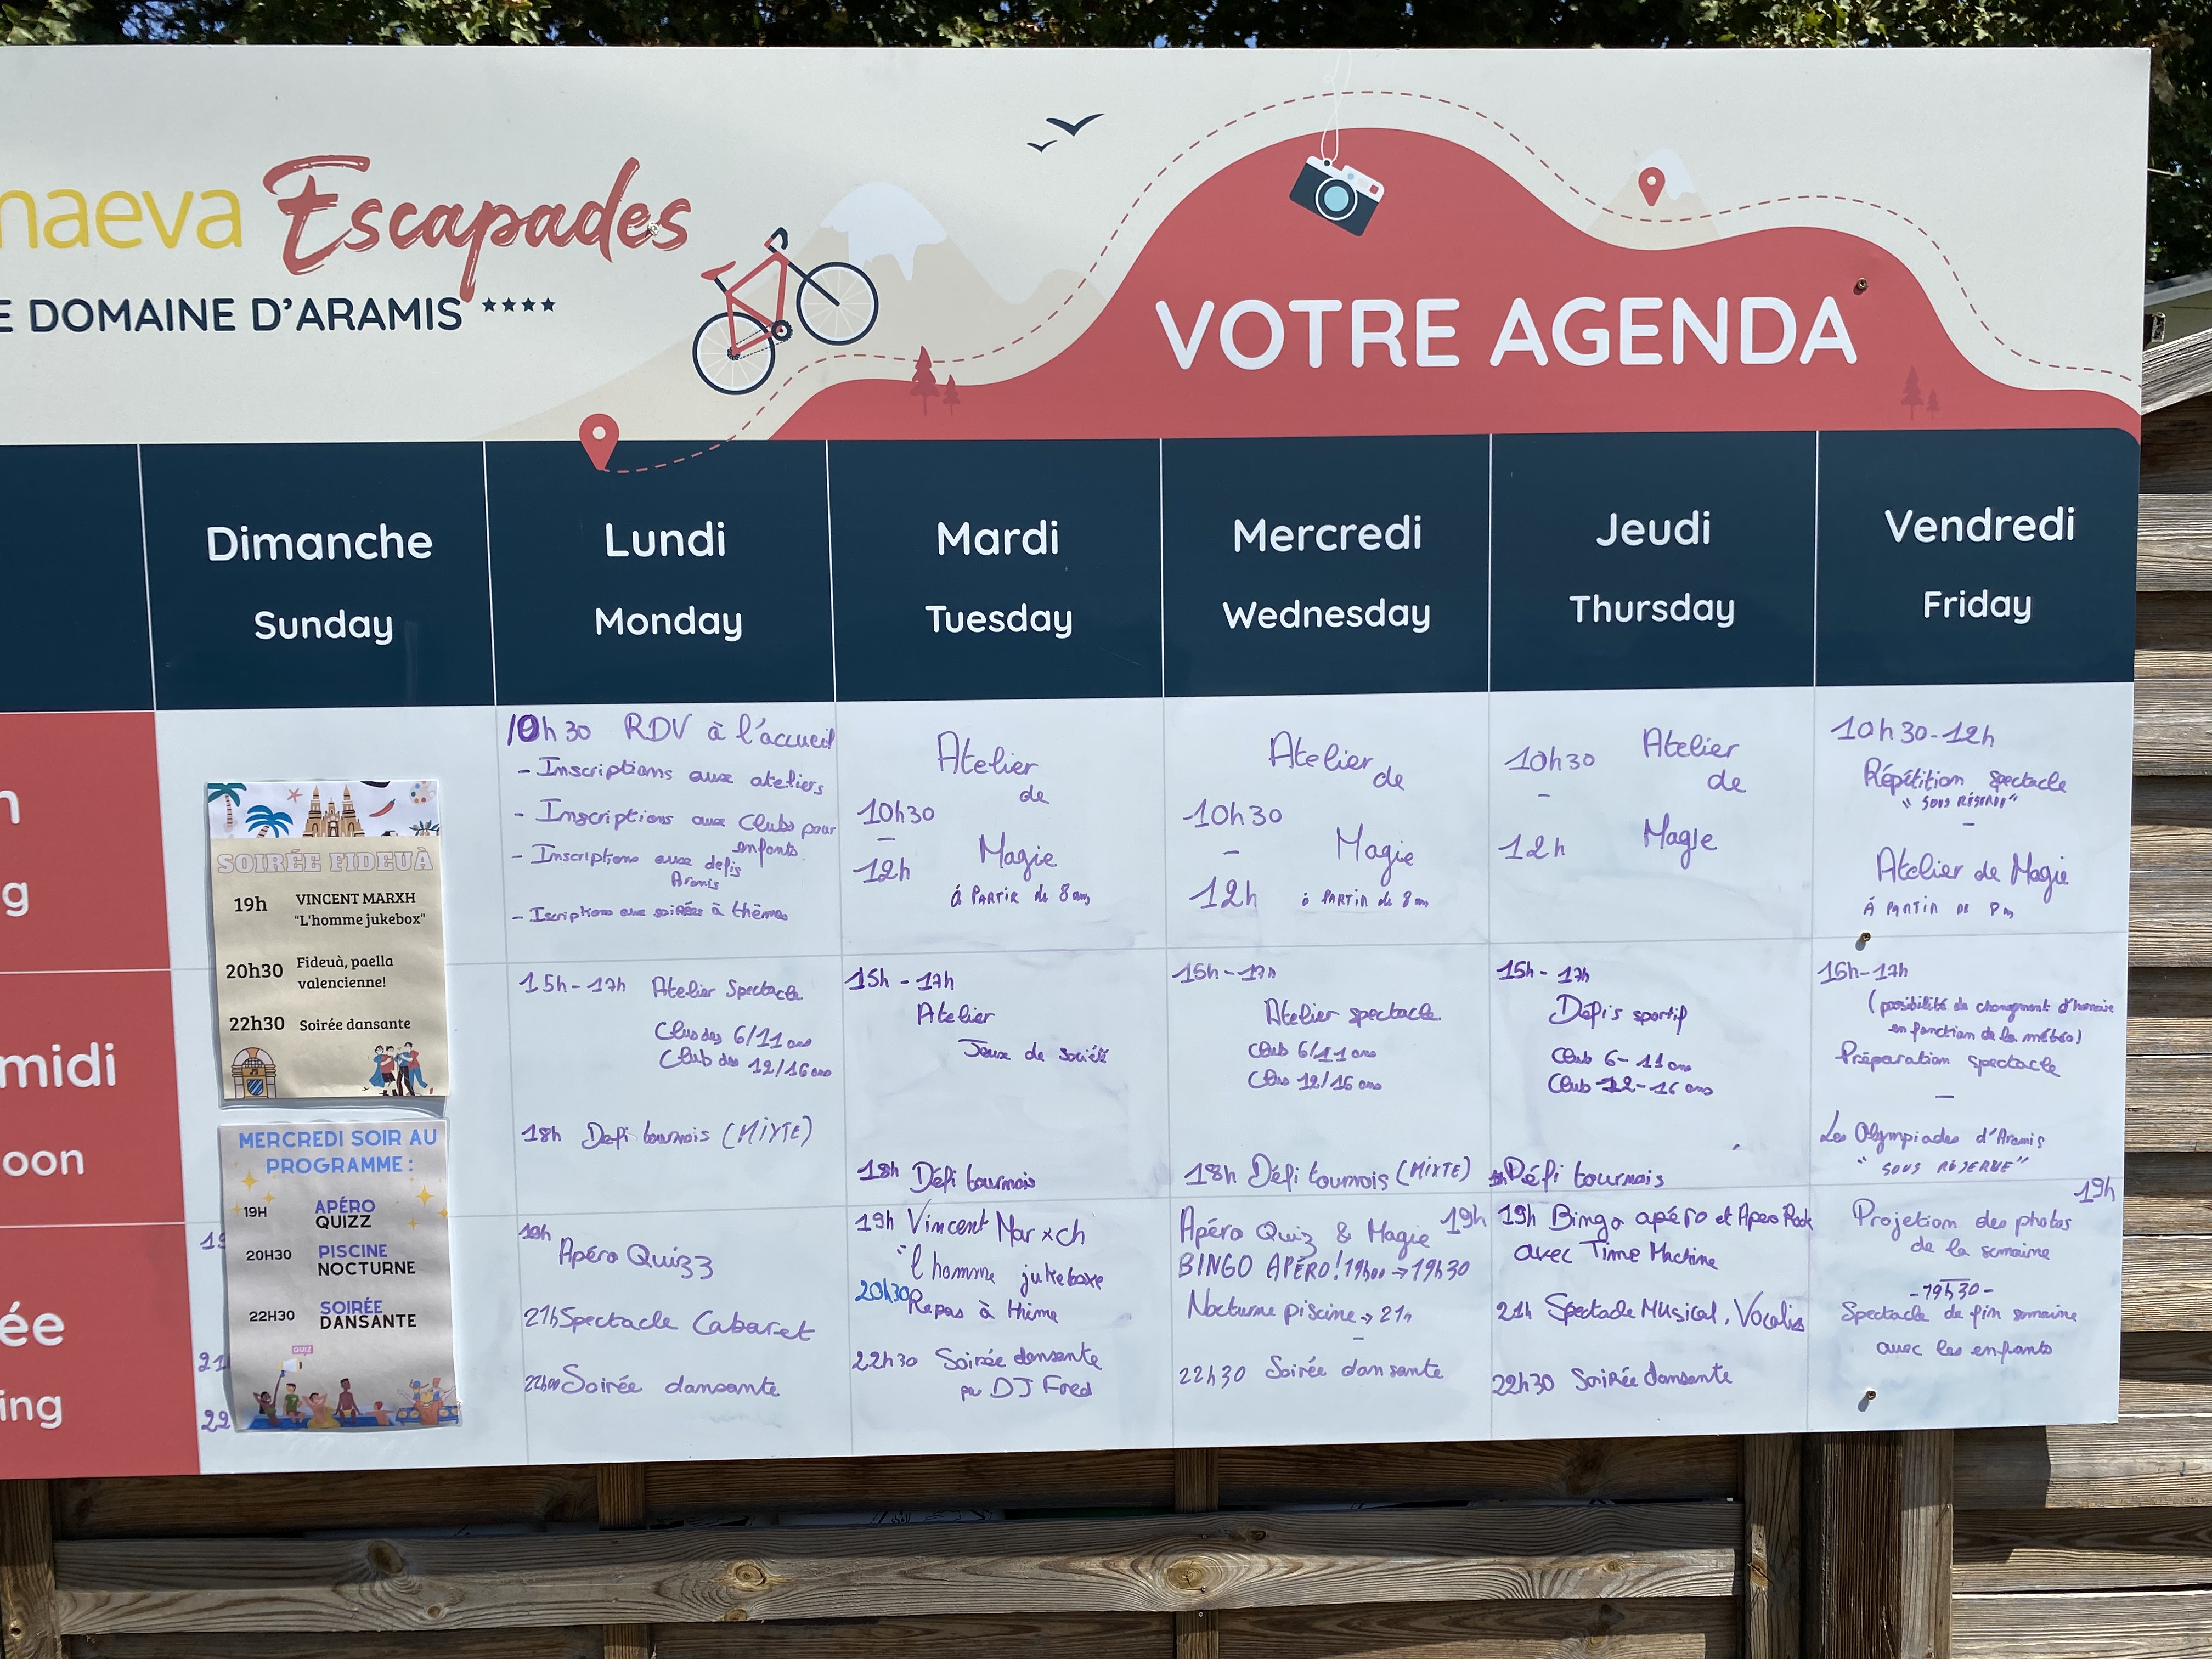 naeva Escapades
E DOMAINE D'ARAMIS ****
VOTRE AGENDA
Dimanche
Sunday
Lundi
Monday
Mardi
Tuesday
Mercredi
Wednesday
Jeudi
Thursday
Vendredi
Friday
n
g
midi
oon
ée
ing
SOIRÉE FIDEUÀ
19h VINCENT MARXH
"L'homme jukebox"
20h30 Fideuà, paella
valencienne!
22h30 Soirée dansante
MERCREDI SOIR AU
PROGRAMME :
19H APÉRO
QUIZZ
20H30 PISCINE
NOCTURNE
22H30 SOIRÉE
DANSANTE
QUIZ
19
21
22
10h30 RDV à l'accueil
- Inscriptions aux ateliers
- Inscriptions aux Clubs pour
enfants
- Inscriptions aux defis
Aramis
- Iscriptions aux soirées à thèmes
15h-17h Atelier Spectacle
Club des 6/11 ans
Club des 12/16 ans
18h Defi tournois (MIXTE)
19h
Apéro Quizz
21h Spectacle Cabaret
22h00 Soirée dansante
Atelier
de
10h30
-
12h
Magie
à PARTIR de 8 ans
15h - 17h
Atelier
Jeux de société
18h Défi tournois
19h Vincent Marxch
"l'homme jukeboxe
20h30 Repas à thème
22h30 Soirée dansante
par DJ Fred
Atelier
de
10h30
-
12h
Magie
à PARTIR de 8 ans
15h-17h
Atelier spectacle
Club 6/11 ans
Club 12/16 ans
18h Défi tournois (MIXTE)
Apéro Quiz & Magie 19h
BINGO APÉRO! 19h00 → 19h30
Nocturne piscine → 21h
-
22h30 Soirée dansante
10h30 Atelier
- de
12h Magie
15h - 17h
Défis sportif
Club 6-11 ans
Club 12-16 ans
Défi tournois
19h Bingo apéro et Apero Rock
avec Time Machine
21h Spectacle Musical, Vocalis
22h30 Soirée dansante
10h30-12h
Répétition spectacle
"SOUS RÉSERVE"
-
Atelier de Magie
À PARTIR DE 8 ans
15h-17h
(possibilité de changement d'horaire
en fonction de la météo)
Préparation spectacle
-
Les Olympiades d'Aramis
"SOUS RÉSERVE"
19h
Projetion des photos
de la semaine
-19h30-
Spectacle de fin semaine
avec les enfants